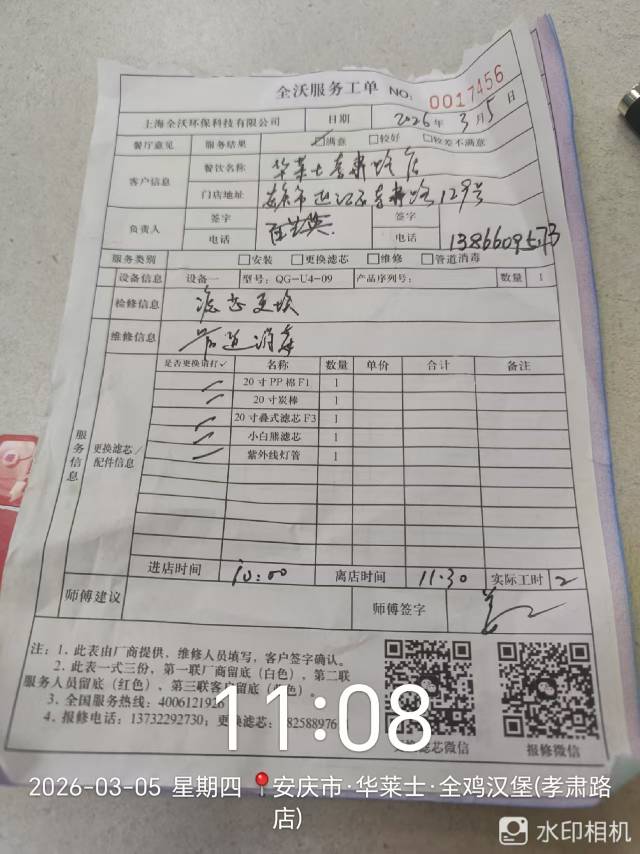 全沃服务工单 NO: 0017456
上海全沃环保科技有限公司 日期 2026年3月5日
餐厅意见 服务结果 ☑满意 □较好 □较差不满意
客户信息 餐饮名称 华莱士孝肃路店
门店地址 安庆市迎江区孝肃路129号
负责人 签字 签字
电话 电话
服务类别 □安装 □更换滤芯 □维修 □管道消毒
设备信息 设备一 型号: QG-U4-09 产品序列号: 数量 1
检修信息 滤芯更换
维修信息 管道消毒
服务信息 更换滤芯/配件信息 是否更换请打✓ 名称 数量 单价 合计 备注
20寸PP棉F1 1
20寸炭棒 1
20寸叠式滤芯F3 1
小白熊滤芯 1
紫外线灯管 1
进店时间 10:00 离店时间 11:30 实际工时 2
师傅建议 师傅签字
注: 1、此表由厂商提供、维修人员填写，客户签字确认。
2、此表一式三份，第一联厂商留底（白色），第二联
服务人员留底（红色），第三联客户留底 色）。
3、全国服务热线: 4006121926
4、报修电话: 13732292730; 更换滤芯: 82588976
滤芯微信 报修微信
11:08
2026-03-05 星期四 安庆市·华莱士·全鸡汉堡(孝肃路
店)
水印相机